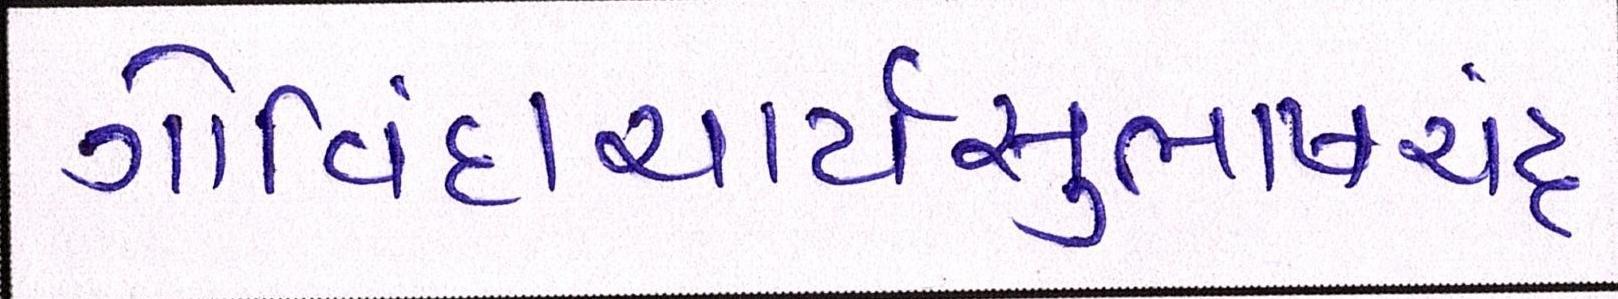 ગોવિંદાચાર્યસુભાષચંદ્ર